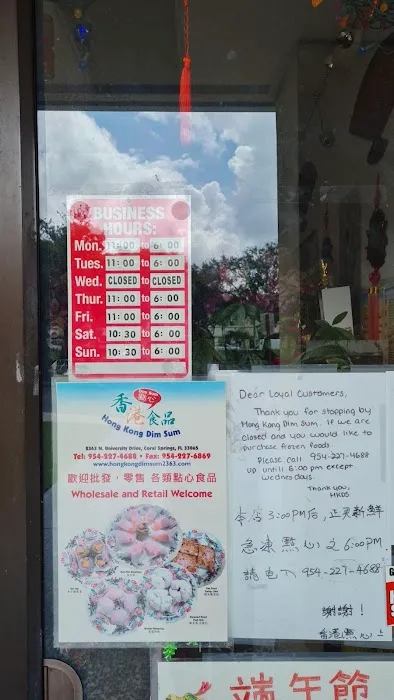 BUSINESS
HOURS:
Mon. 11:00 to 6:00
Tues. 11:00 to 6:00
Wed. CLOSED to CLOSED
Thur. 11:00 to 6:00
Fri. 11:00 to 6:00
Sat. 10:30 to 6:00
Sun. 10:30 to 6:00
香港食品
點心
Hong Kong Dim Sum
2363 N. University Drive, Coral Springs, FL 33065
Tel: 954-227-4688 • Fax: 954-227-6869
www.hongkongdimsum2363.com
歡迎批發，零售 各類點心食品
Wholesale and Retail Welcome
Dear Loyal Customers,
Thank you for stopping by
Hong Kong Dim Sum. If we are
closed and you would like to
purchase frozen foods.
Please call 954-227-4688
up until 6:00 pm except
wednesdays.
Thank you,
HKDS
本店 3:00PM后，正買新鮮
急凍點心之6:00PM
請电 954-227-4688
謝謝！
香港點心上
端午節